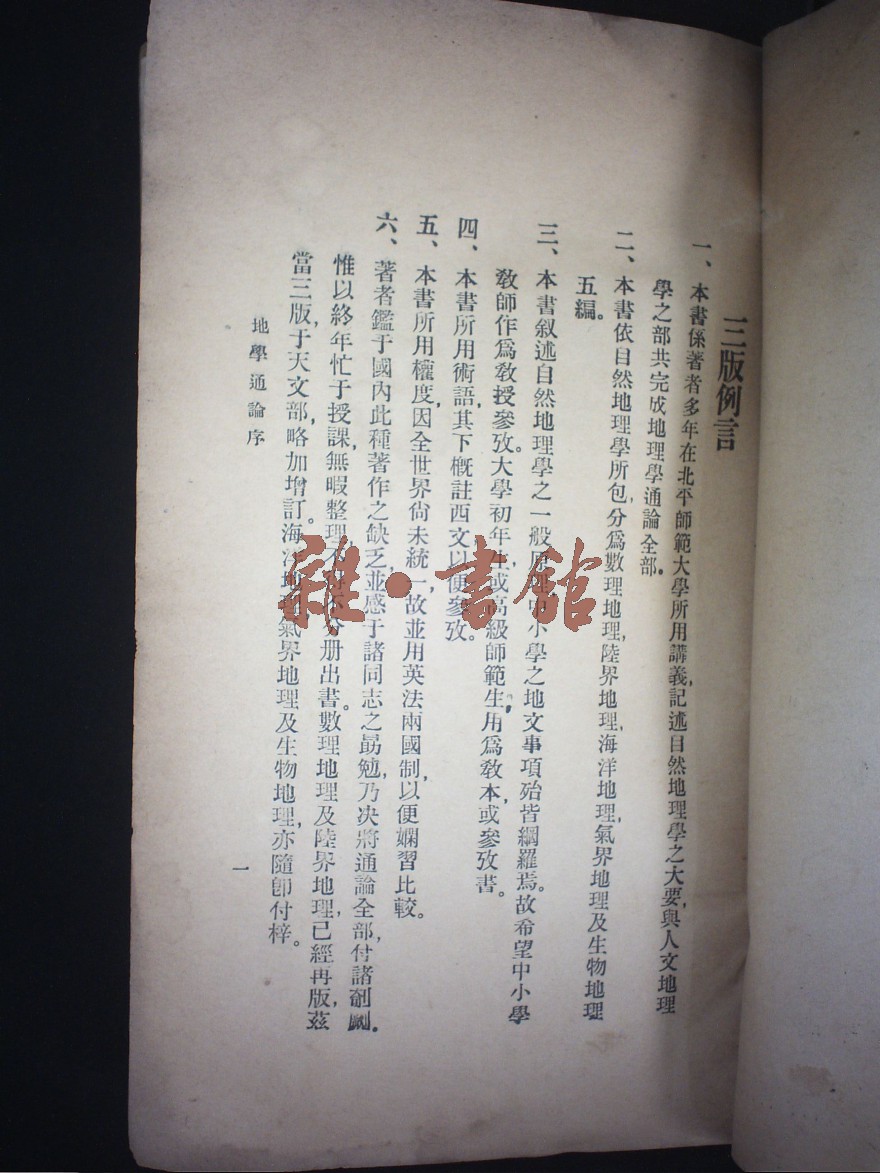 三版例言
一、本書係著者多年在北平師範大學所用講義，記述自然地理學之大要，與人文地理
學之部共完成地理學通論全部。
二、本書依自然地理學所包，分爲數理地理，陸界地理，海洋地理，氣界地理及生物地理
五編。
三、本書叙述自然地理學之一般原理，中小學之地文事項殆皆綱羅焉。故希望中小學
教師作爲教授參攷。大學初年生，或高級師範生，用爲教本，或參攷書。
四、本書所用術語，其下概註西文以便參攷。
五、本書所用權度，因全世界尙未統一，故並用英法兩國制，以便嫻習比較。
六、著者鑑于國內此種著作之缺乏，並感于諸同志之勗勉，乃决將通論全部，付諸剞劂。
惟以終年忙于授課，無暇整理，不分册出書。數理地理及陸界地理，已經再版，茲
當三版，于天文部，略加增訂。海洋地理氣界地理及生物地理，亦隨卽付梓。
地學通論序
一
雜·書館